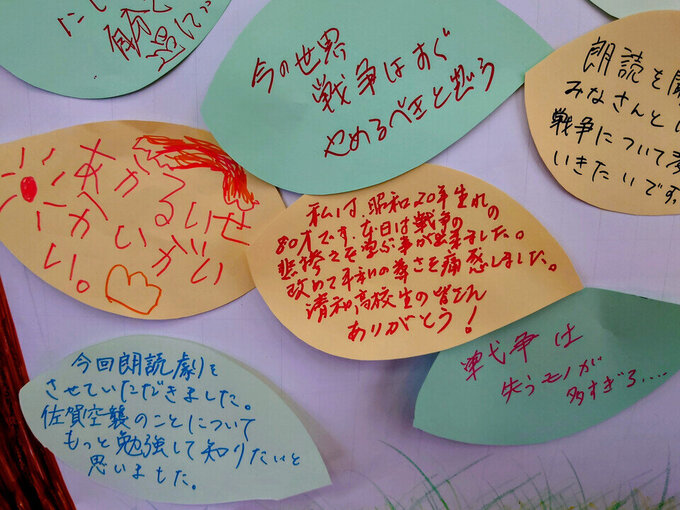 にし
自分
過に
今の世界
戦争はすぐ
やめるべきと思う
朗読を
みなさんと
戦争について
いきたいです。
あかるいせ
かいがい
い。
私は、昭和20年生れの
80才です。本日は戦争の
悲惨さを学ぶ事が出来ました。
改めて平和の尊さを痛感しました。
清和高校生の皆さん
ありがとう!
戦争は
失うモノが
多すぎる....
今回朗読劇を
させていただきました。
佐賀空襲のことについて
もっと勉強して知りたいと
思いました。